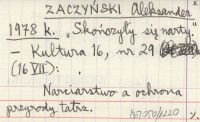 ZACZYŃSKI Aleksander K
1978 k. „Skończyły się narty".
– Kultura 16, nr 29
(16 VII):
Narciarstwo a ochrona
przyrody tatrz.